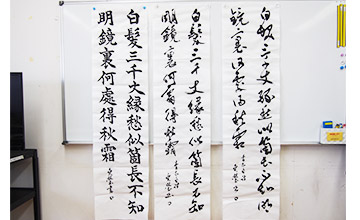 白髮三千丈縁愁似箇長不知明
鏡裏何處得秋霜
白髮三千丈縁愁似箇長不知
明鏡裏何處得秋霜
白髮三千丈縁愁似箇長不知
明鏡裏何處得秋霜